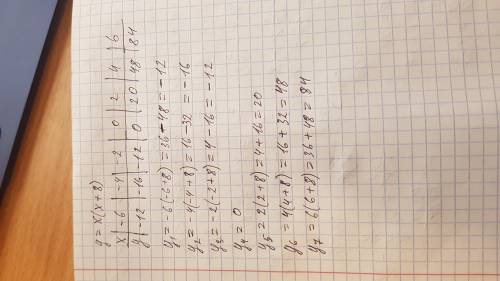 y = x(x+8)
x | -6 | -4 | -2 | 0 | 2 | 4 | 6
y | -12 | -16 | -12 | 0 | 20 | 48 | 84
y₁ = -6(-6+8) = 36-48 = -12
y₂ = -4(-4+8) = 16-32 = -16
y₃ = -2(-2+8) = 4-16 = -12
y₄ = 0
y₅ = 2(2+8) = 4+16 = 20
y₆ = 4(4+8) = 16+32 = 48
y₇ = 6(6+8) = 36+48 = 84